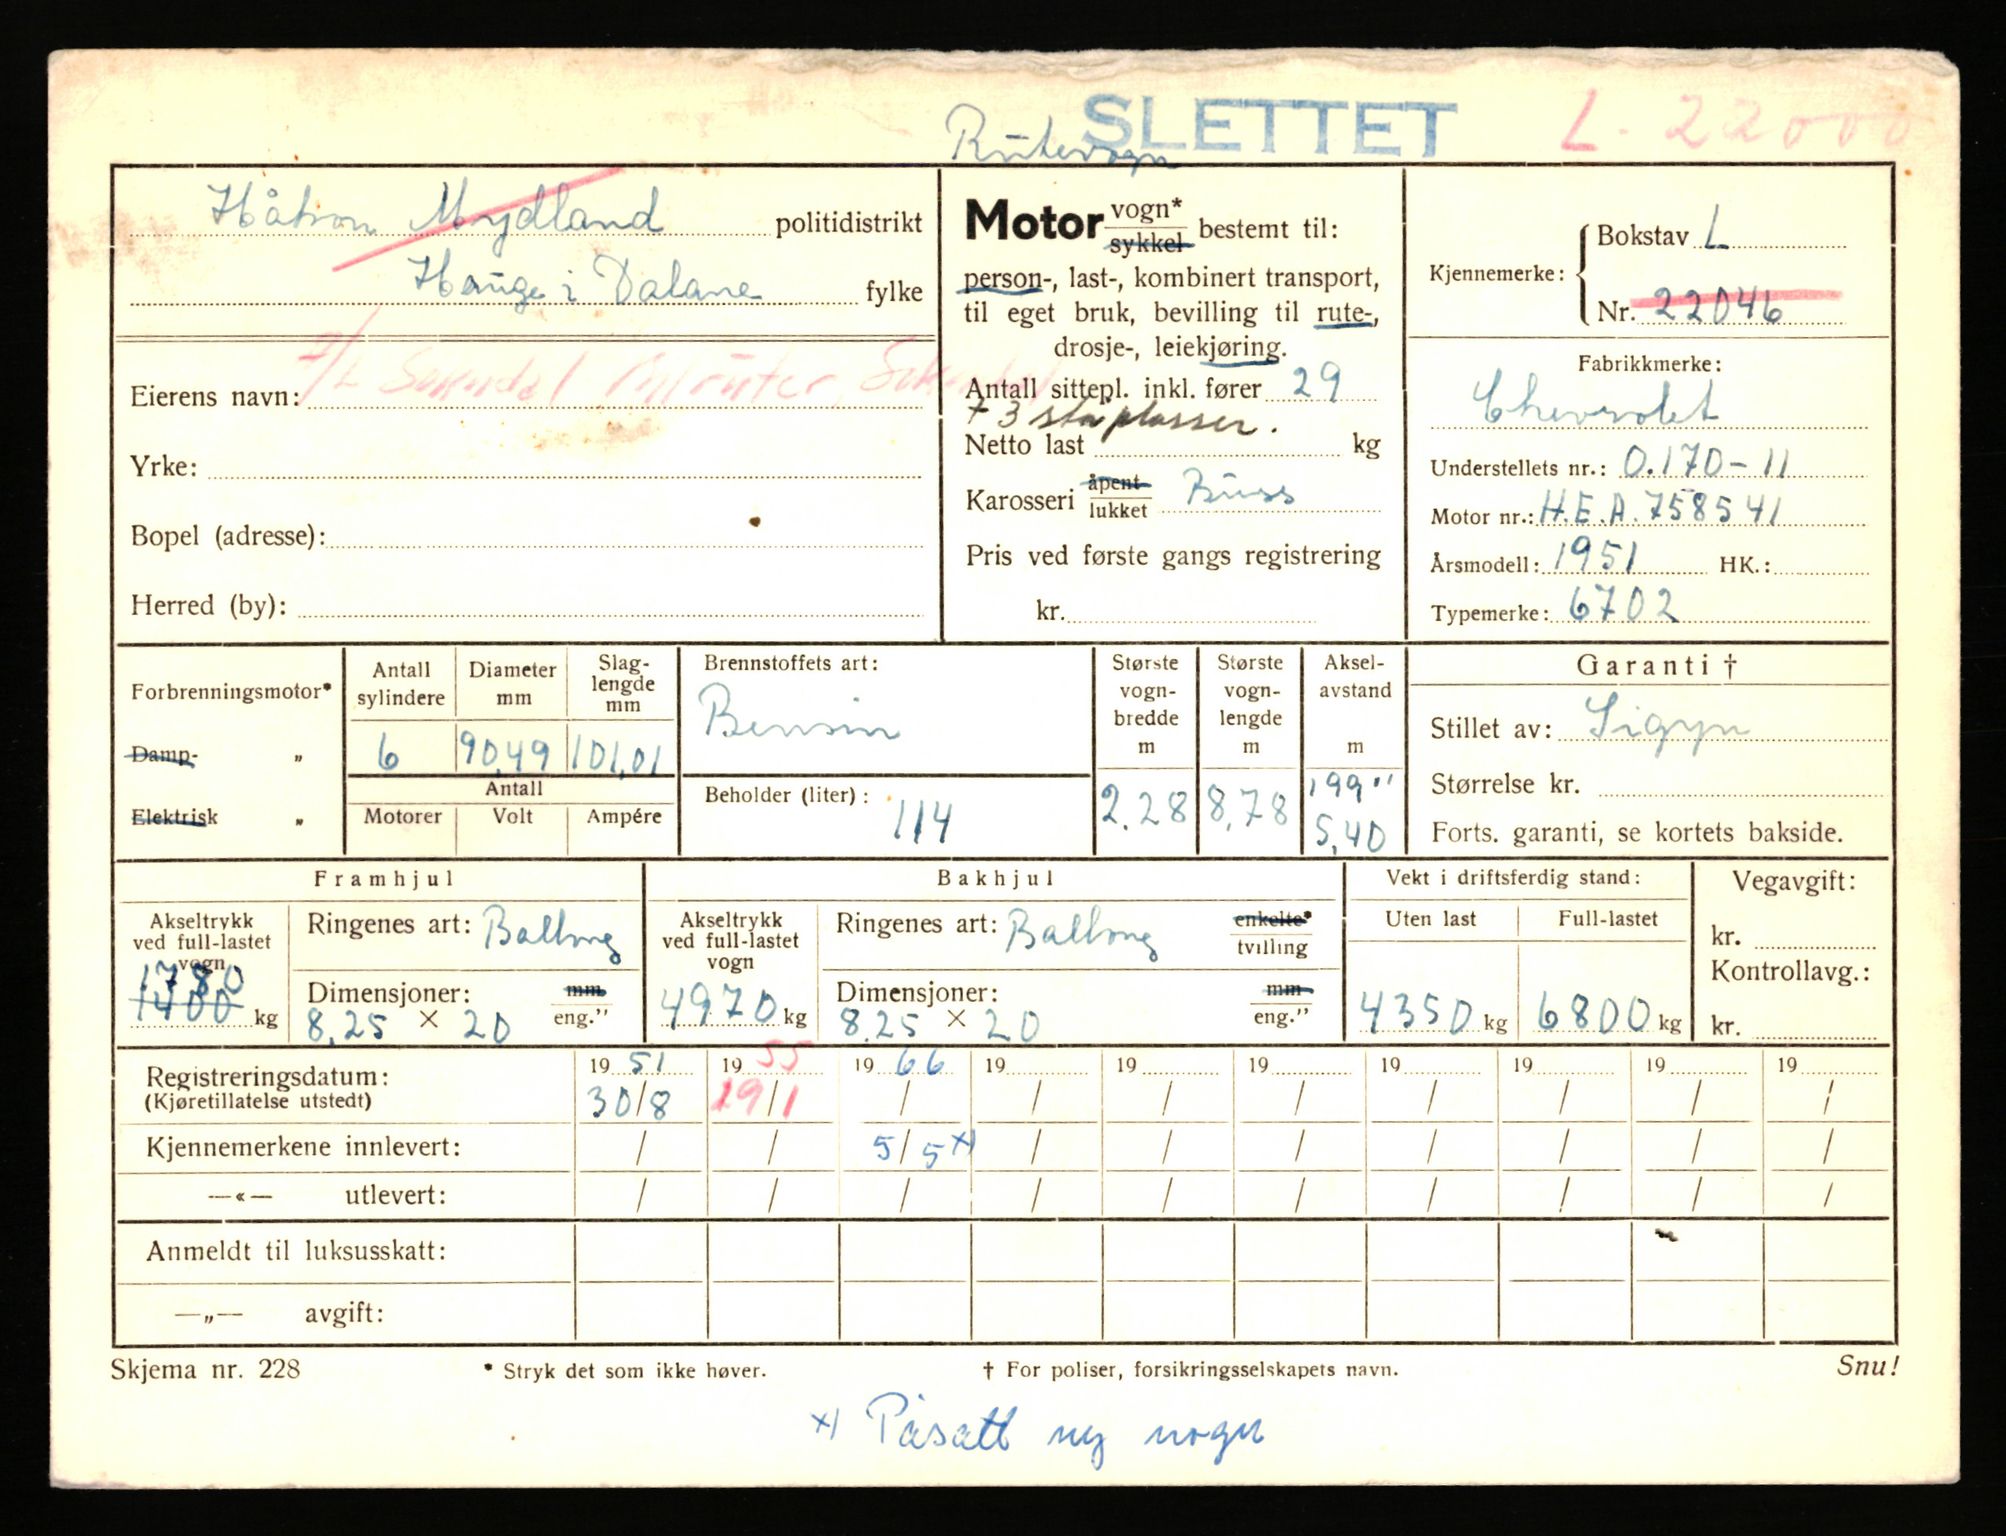 Rutevogn SLETTET L-22000
Håkon Mydland politidistrikt
Hauge i Dalane fylke
Eierens navn: Sokndal Bilruter, Sokndal
Yrke:
Bopel (adresse):
Herred (by):
Motor vogn* sykkel bestemt til:
person-, last-, kombinert transport,
til eget bruk, bevilling til rute-,
drosje-, leiekjøring.
Antall sittepl. inkl. fører 29
+ 3 ståplasser.
Netto last kg
Karosseri åpent lukket Buss
Pris ved første gangs registrering
kr.
Kjennemerke: Bokstav L
Nr. 22046
Fabrikkmerke:
Chevrolet
Understellets nr.: 0.170-11
Motor nr.: H.E.A. 758541
Årsmodell: 1951 HK.:
Typemerke: 6702
Forbrenningsmotor*
Damp- „
Elektrisk „
Antall sylindere 6
Diameter mm 90,49
Slag- lengde mm 101,01
Antall
Motorer Volt Ampére
Brennstoffets art:
Bensin
Beholder (liter): 114
Største vogn- bredde m 2.28
Største vogn- lengde m 8,78
Aksel- avstand m 199"
5,40
Garanti †
Stillet av: Sigyn
Størrelse kr.
Forts. garanti, se kortets bakside.
Framhjul
Akseltrykk ved full-lastet vogn
1780
1400 kg
Ringenes art: Ballong
Dimensjoner: mm
8,25 × 20 eng."
Bakhjul
Akseltrykk ved full-lastet vogn
4970 kg
Ringenes art: Ballong enkelte* tvilling
Dimensjoner: mm
8.25 × 20 eng."
Vekt i driftsferdig stand:
Uten last Full-lastet
4350 kg 6800 kg
Vegavgift:
kr.
Kontrollavg.:
kr.
19 51 19 55 19 66 19 19 19 19 19 19 19
Registreringsdatum: 30/8 19/1 / / / / / / / /
(Kjøretillatelse utstedt)
Kjennemerkene innlevert: / / 5/5 x) / / / / / / /
—«— utlevert: / / / / / / / / / /
Anmeldt til luksusskatt:
—„— avgift:
Skjema nr. 228 * Stryk det som ikke høver. † For poliser, forsikringsselskapets navn. Snu!
x) Påsatt ny vogn